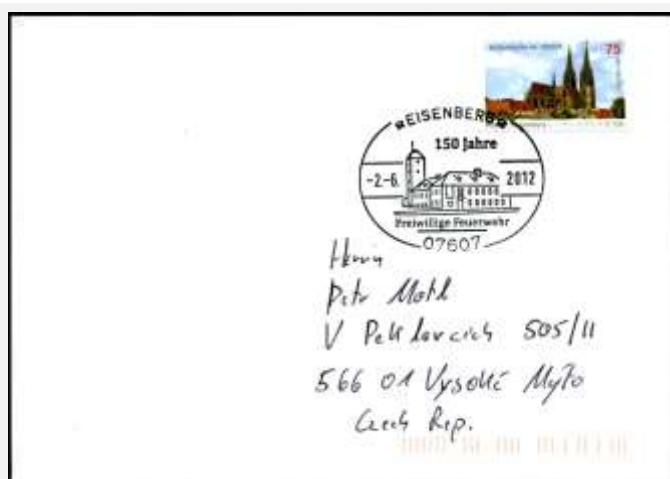 75
EISENBERG
150 Jahre
-2.-6. 2012
Freiwillige Feuerwehr
07607
Herrn
Petr
V 505/II
566 01 Vysoké Mýto
Czech Rep.